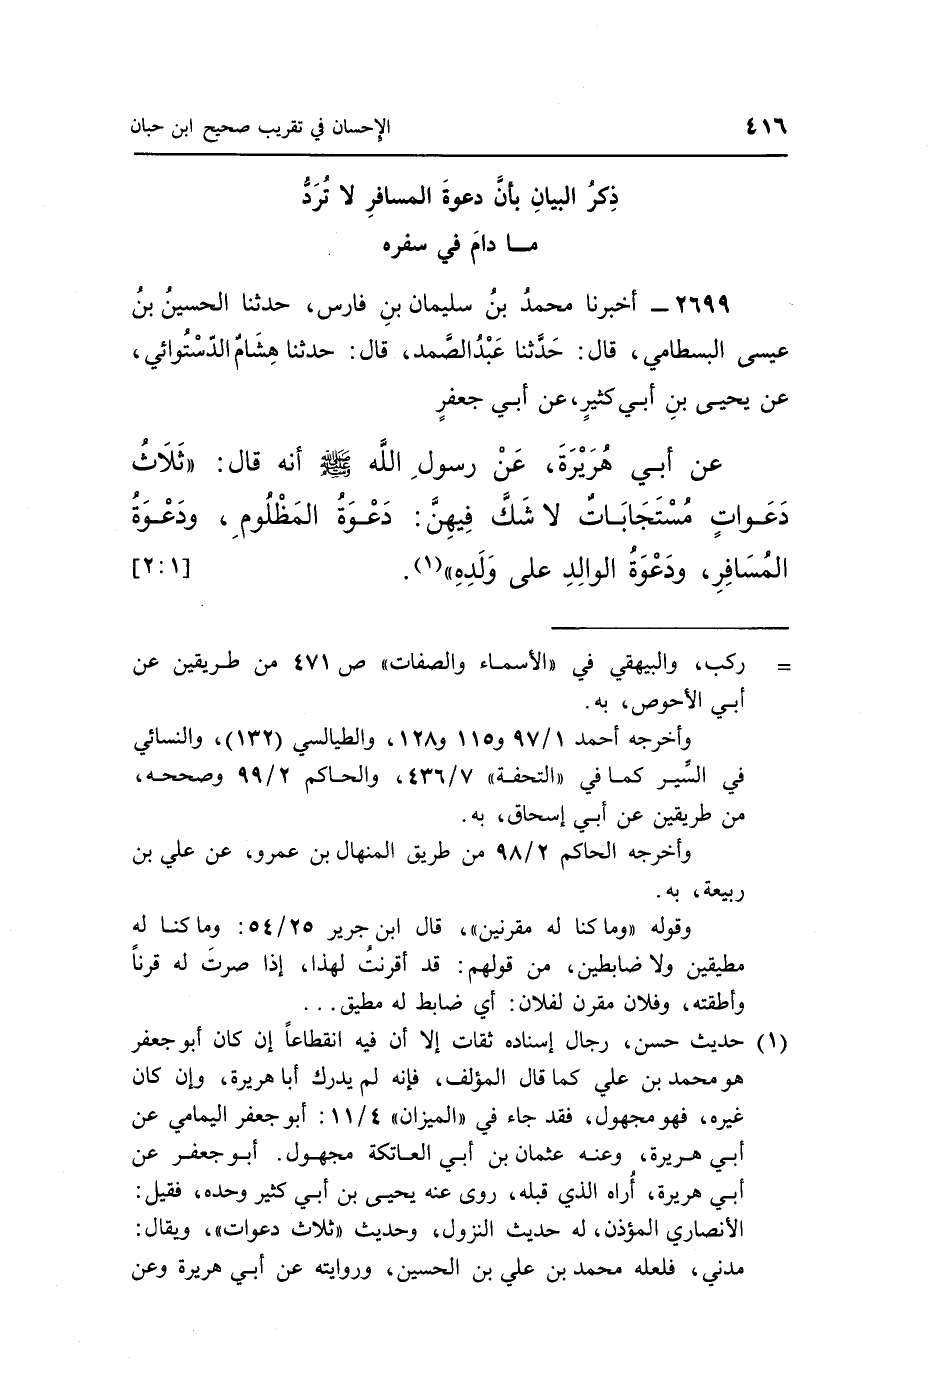 ٤١٦ الإحسان في تقريب صحيح ابن حبان
ذِكرُ البيانِ بأنَّ دعوةَ المسافرِ لا تُرَدُّ
مـا دامَ في سفره
٢٦٩٩ ـ أخبرنا محمدُ بنُ سليمان بنِ فارس، حدثنا الحسينُ بنُ
عيسى البسطامي، قال: حَدَّثنا عَبْدُالصَّمد، قال: حدثنا هِشَامُ الدّسْتُوائي،
عن يحيـى بنِ أبـي كثيرٍ، عن أبـي جعفرٍ
عن أبـي هُرَيْرَةَ، عَنْ رسولِ اللَّه ﷺ أنه قال: «ثَلَاثُ
دَعَـواتٍ مُسْتَجَابَـاتٌ لا شَكَّ فِيهِنَّ: دَعْـوَةُ المَظْلُومِ، ودَعْـوَةُ
المُسَافِرِ، ودَعْوَةُ الوالِدِ على وَلَدِهِ»(١). [٢:١]
= ركب، والبيهقي في «الأسمـاء والصفات» ص ٤٧١ من طـريقين عن
أبـي الأحوص، به.
وأخرجه أحمد ٩٧/١ و١١٥ و١٢٨، والطيالسي (١٣٢)، والنسائي
في السِّيـر كمـا في «التحفـة» ٤٣٦/٧، والحـاكم ٩٩/٢ وصححـه،
من طريقين عن أبـي إسحاق، به.
وأخرجه الحاكم ٩٨/٢ من طريق المنهال بن عمرو، عن علي بن
ربيعة، به.
وقوله «وما كنا له مقرنين»، قال ابن جرير ٥٤/٢٥: وما كنـا له
مطيقين ولا ضابطين، من قولهم: قد أقرنتُ لهذا، إذا صرتَ له قرناً
وأطقته، وفلان مقرن لفلان: أي ضابط له مطيق...
(١) حديث حسن، رجال إسناده ثقات إلا أن فيه انقطاعاً إن كان أبو جعفر
هو محمد بن علي كما قال المؤلف، فإنه لم يدرك أبا هريرة، وإن كان
غيره، فهو مجهول، فقد جاء في «الميزان» ١١/٤: أبو جعفر اليمامي عن
أبـي هـريرة، وعنـه عثمان بن أبـي العـاتكة مجهـول. أبـو جعفـر عن
أبـي هريرة، أُراه الذي قبله، روى عنه يحيـى بن أبـي كثير وحده، فقيل:
الأنصاري المؤذن، له حديث النزول، وحديث «ثلاث دعوات»، ويقال:
مدني، فلعله محمد بن علي بن الحسين، وروايته عن أبـي هريرة وعن